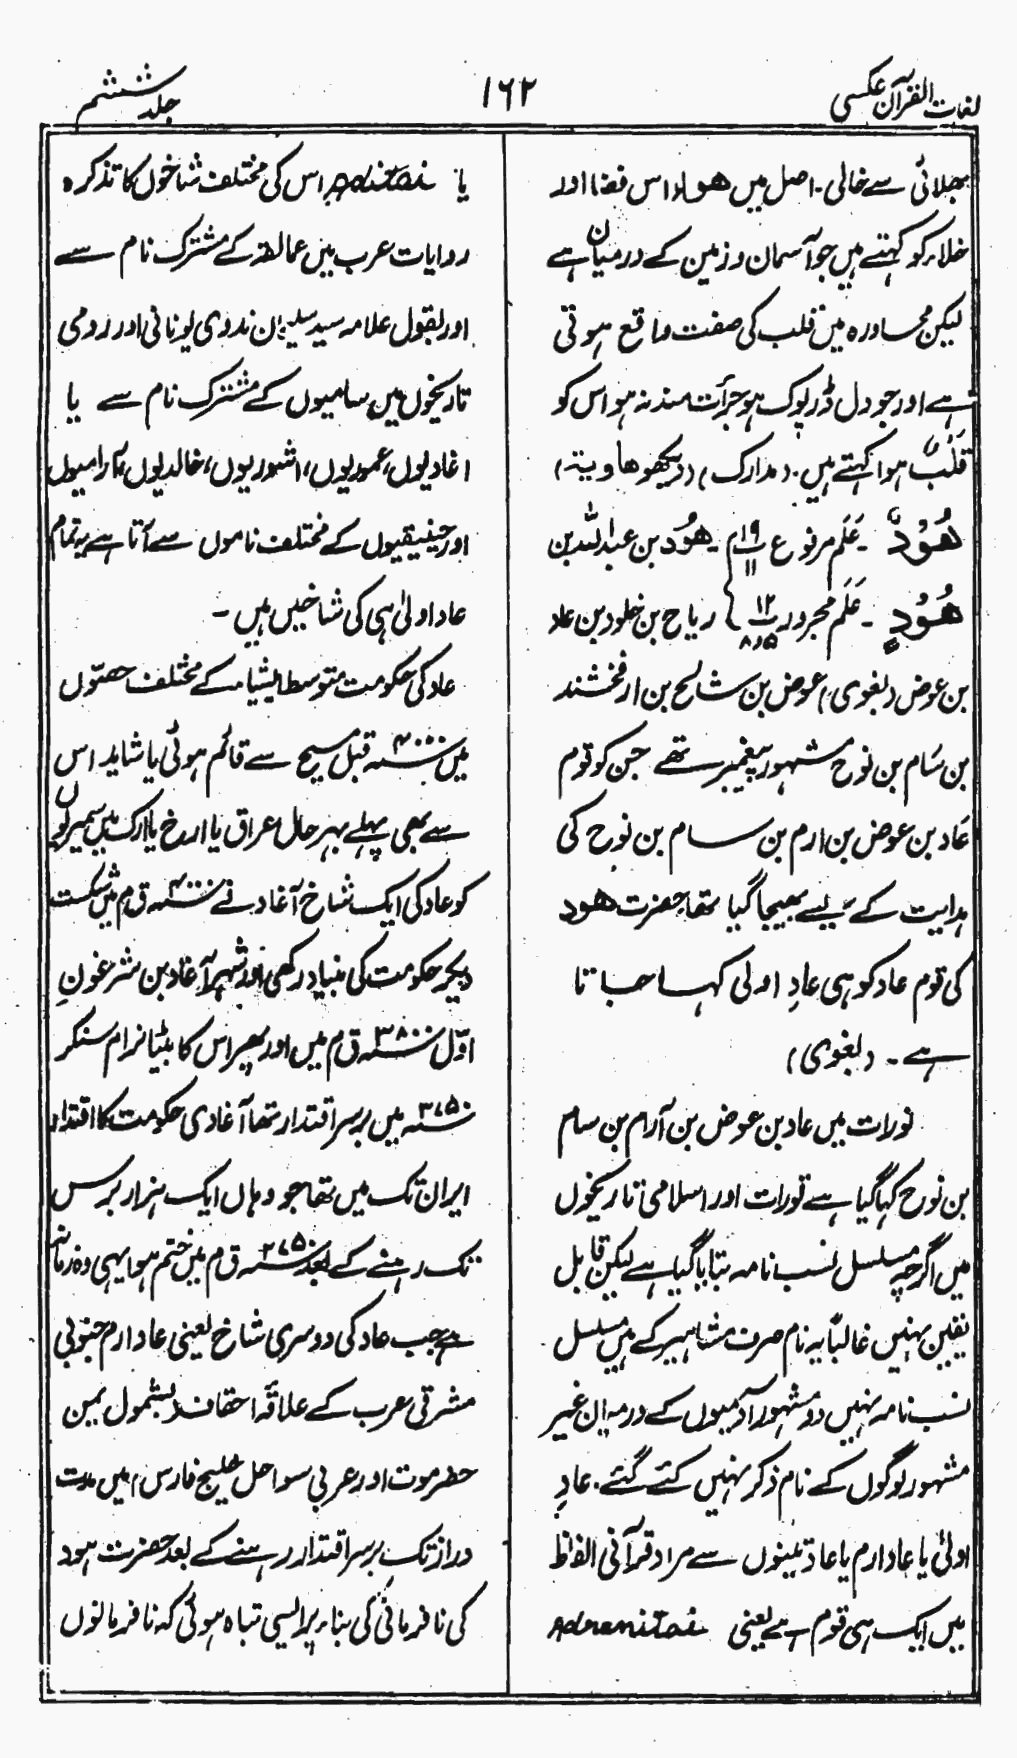 لغات القرآن عکسی
۱۶۲
جلد ششم
بھلائی سے خالی۔ اصل میں ھواء اس فضا اور
خلاء کو کہتے ہیں جو آسمان و زمین کے درمیان ہے
لیکن محاورہ میں قلب کی صفت واقع ہوتی
ہے اور جو دل ڈرپوک ہو جرأت مند نہ ہو اس کو
قَلْبٌ ہوا کہتے ہیں۔ (مدارک) (دیکھو ھاویۃ)
ھُوْدٌ ۔ عَلَم مرفوع ۱۹ ۱۱ م ۔ ھُود بن عبداللہ بن
ھُوْدٍ ۔ عَلَم مجرور ۱۲ ۸،۵ ریاح بن خلود بن عاد
بن عوض (بغوی) عوض بن شالح بن ارفخشند
بن سَام بن نوح مشہور پیغمبر تھے جن کو قوم
عَاد بن عوض بن ارم بن سام بن نوح کی
ہدایت کے لیے بھیجا گیا تھا، حضرت ھود
کی قوم عاد کو ہی عادِ اولی کہا جاتا
ہے۔ (بغوی)
تورات میں عاد بن عوض بن آرام بن سام
بن نوح کہا گیا ہے تورات اور اسلامی تاریخوں
میں اگرچہ مسلسل نسب نامہ بتایا گیا ہے لیکن قابل
یقین نہیں غالباً یہ نام صرف مشاہیر کے ہیں مسلسل
نسب نامہ نہیں دو مشہور آدمیوں کے درمیان غیر
مشہور لوگوں کے نام ذکر نہیں کئے گئے۔ عادِ
اولیٰ یا عاد ارم یا عاد تینوں سے مراد قرآنی الفاظ
میں ایک ہی قوم ہے یعنی Adramitai
یا Aditai اس کی مختلف شاخوں کا تذکرہ
روایات عرب میں عمالقہ کے مشترک نام سے
اور بقول علامہ سید سلیمان ندوی یونانی اور رومی
تاریخوں میں سامیوں کے مشترک نام سے یا
اغادیوں، عموریوں، اشوریوں، خالدیوں، آرامیوں
اور حینیقیوں کے مختلف ناموں سے آتا ہے یہ تمام
عاد اولیٰ ہی کی شاخیں ہیں۔
عاد کی حکومت متوسط ایشیاء کے مختلف حصّوں
میں ۴۰۰۰ قبل مسیح سے قائم ہوئی یا شاید اس
سے بھی پہلے بہر حال عراق یا ارخ یا ارک میں سمیریوں
کو عاد کی ایک شاخ آغاد نے ۴۰۰۰ ق م میں شکست
دیکر حکومت کی بنیاد رکھی اور شہر آغاد بن شرغون
اوّل ۳۸۰۰ ق م میں اور پھر اس کا بیٹا نرام سنکر
۳۷۵۰ میں برسر اقتدار تھا آغادی حکومت کا اقتدار
ایران تک میں تھا جو وہاں ایک ہزار برس
تک رہنے کے بعد ۲۷۵۰ ق م میں ختم ہوا یہی وہ زمانہ
ہے جب عاد کی دوسری شاخ یعنی عاد ارم جنوبی
مشرقی عرب کے علاقہ احقاف (بشمول یمن
حضرموت اور عربی سواحل خلیج فارس) میں مدت
دراز تک برسر اقتدار رہنے کے بعد حضرت ہود
کی نافرمانی کی بناء پر ایسی تباہ ہوئی کہ نافرمانوں